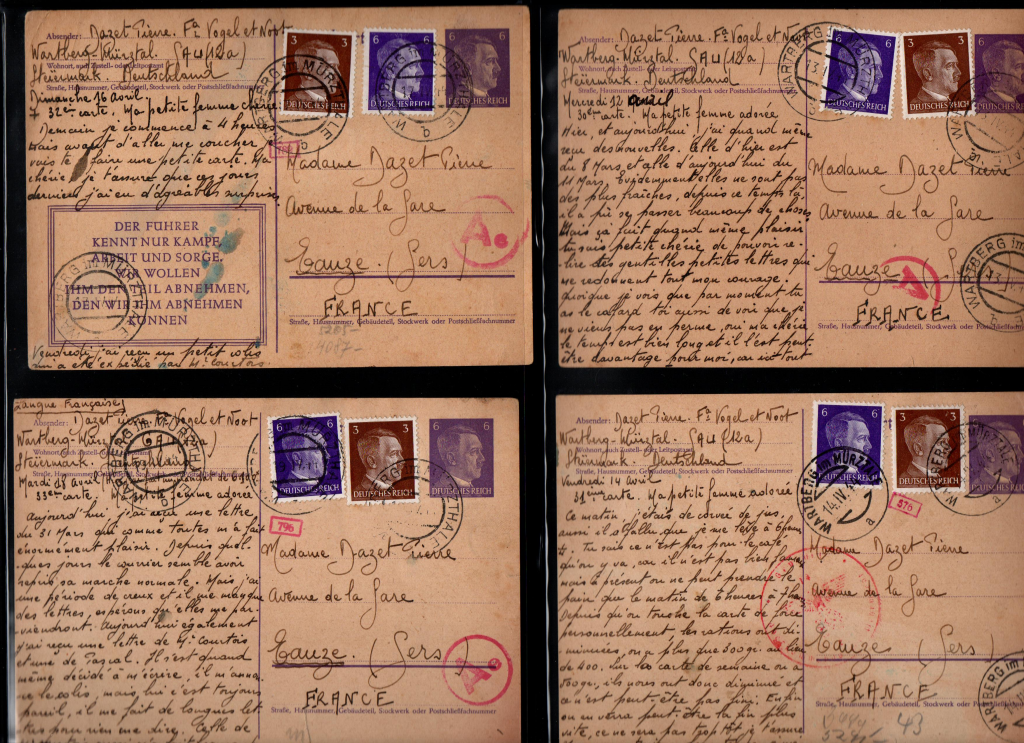 Absender: Dazet Pierre. Fa Vogel et Noot
Wartberg-Mürztal. (AU/12a)
Wohnort, auch Zustell- oder Leitpostamt
Steiermark. Deutschland
Straße, Hausnummer, Gebäudeteil, Stockwerk oder Postschließfachnummer
Dimanche 16 avril
32eme carte. Ma petite femme chérie
Demain je commence à 4 heures
Mais avant d'aller me coucher je
vais te faire une petite carte. Ma
chérie je t'assure que ces jours
derniers j'ai eu d'agréables surprises
DER FÜHRER
KENNT NUR KAMPF,
ARBEIT UND SORGE.
WIR WOLLEN
IHM DEN TEIL ABNEHMEN,
DEN WIR IHM ABNEHMEN
KÖNNEN
Vendredi j'ai reçu un petit colis
a été expédié par Mr Courtois
3 3
DEUTSCHES REICH
6 6
DEUTSCHES REICH
6
WARTBERG im MÜRZTHALE
Madame Dazet Pierre
Avenue de la Gare
Eauze. (Gers)
FRANCE
Straße, Hausnummer, Gebäudeteil, Stockwerk oder Postschließfachnummer
Ae
Absender: Dazet Pierre. Fa Vogel et Noot
Wartberg-Mürztal. (AU/12a)
Wohnort, auch Zustell- oder Leitpostamt
Steiermark. Deutschland
Straße, Hausnummer, Gebäudeteil, Stockwerk oder Postschließfachnummer
Mercredi 12 avril
30eme carte. Ma petite femme adorée
Hier, et aujourd'hui j'ai quand même
reçu des nouvelles. Celle d'hier est
du 8 Mars, et celle d'aujourd'hui du
11 Mars. Evidemment elles ne sont pas
des plus fraîches, depuis ce temps là
il a pu se passer beaucoup de choses
Mais ça fait quand même plaisir
tu sais petite chérie de pouvoir re-
lire des gentilles petites lettres qui
me redonnent tout mon courage.
Quoique je vois que par moment tu
as le cafard toi aussi de voir que je
ne viens pas en perme, oui ma chérie
le temps est bien long et il l'est peut-
être davantage pour moi, car ici tout
6 6
DEUTSCHES REICH
3 3
DEUTSCHES REICH
WARTBERG im MÜRZTHALE
Madame Dazet Pierre
Avenue de la Gare
Eauze (Gers)
FRANCE
Straße, Hausnummer, Gebäudeteil, Stockwerk oder Postschließfachnummer
A
Langue Française
Absender: Dazet Pierre. Fa Vogel et Noot
Wartberg-Mürztal. (AU/12a)
Wohnort, auch Zustell- oder Leitpostamt
Steiermark. Deutschland
Straße, Hausnummer, Gebäudeteil, Stockwerk oder Postschließfachnummer
Mardi 18 avril
33eme carte. Ma petite femme adorée
Aujourd'hui j'ai reçu une lettre
du 31 Mars qui comme toutes m'a fait
énormément plaisir. Depuis quel-
ques jours le courrier semble avoir
repris sa marche normale. Mais j'ai
une période de creux et il me manque
des lettres, espérons qu'elles me par-
viendront. Aujourd'hui également
j'ai reçu une lettre de Mr Courtois
et une de Pascal. Il s'est quand
même décidé à m'écrire, il m'annon-
ce le colis, mais lui c'est toujours
pareil, il me fait de longues let-
tres pour rien me dire. Celle de
6 6
DEUTSCHES REICH
3 3
DEUTSCHES REICH
6 6
796
Madame Dazet Pierre
Avenue de la Gare
Eauze. (Gers)
FRANCE
Straße, Hausnummer, Gebäudeteil, Stockwerk oder Postschließfachnummer
Absender: Dazet Pierre. Fa Vogel et Noot
Wartberg-Mürztal. (AU/12a)
Wohnort, auch Zustell- oder Leitpostamt
Steiermark. Deutschland
Straße, Hausnummer, Gebäudeteil, Stockwerk oder Postschließfachnummer
Vendredi 14 avril
31eme carte. Ma petite femme adorée
Ce matin j'étais de corvée de jus,
aussi il a fallu que je me lève à 6 heures
Tu sais ce n'est pas pour le café
qu'on y va, car il n'est pas bien fameux
mais à présent on ne peut prendre le
pain que le matin de 6 heures à 7 heures
Depuis qu'on touche la carte de
personnellement, les rations ont di-
minuées, on a plus que 300gr. au lieu
de 400. Sur les carte de semaine on a
500gr., ils nous ont donc diminué et
c'est peut-être pas fini. Enfin
on en verra peut-être la fin plus
vite, ce ne sera pas trop tôt je t'assure
6 6
DEUTSCHES REICH
3 3
DEUTSCHES REICH
WARTBERG im MÜRZTHALE
14.IV.
a
576
Madame Dazet Pierre
Avenue de la Gare
Eauze (Gers)
FRANCE
Straße, Hausnummer, Gebäudeteil, Stockwerk oder Postschließfachnummer
43